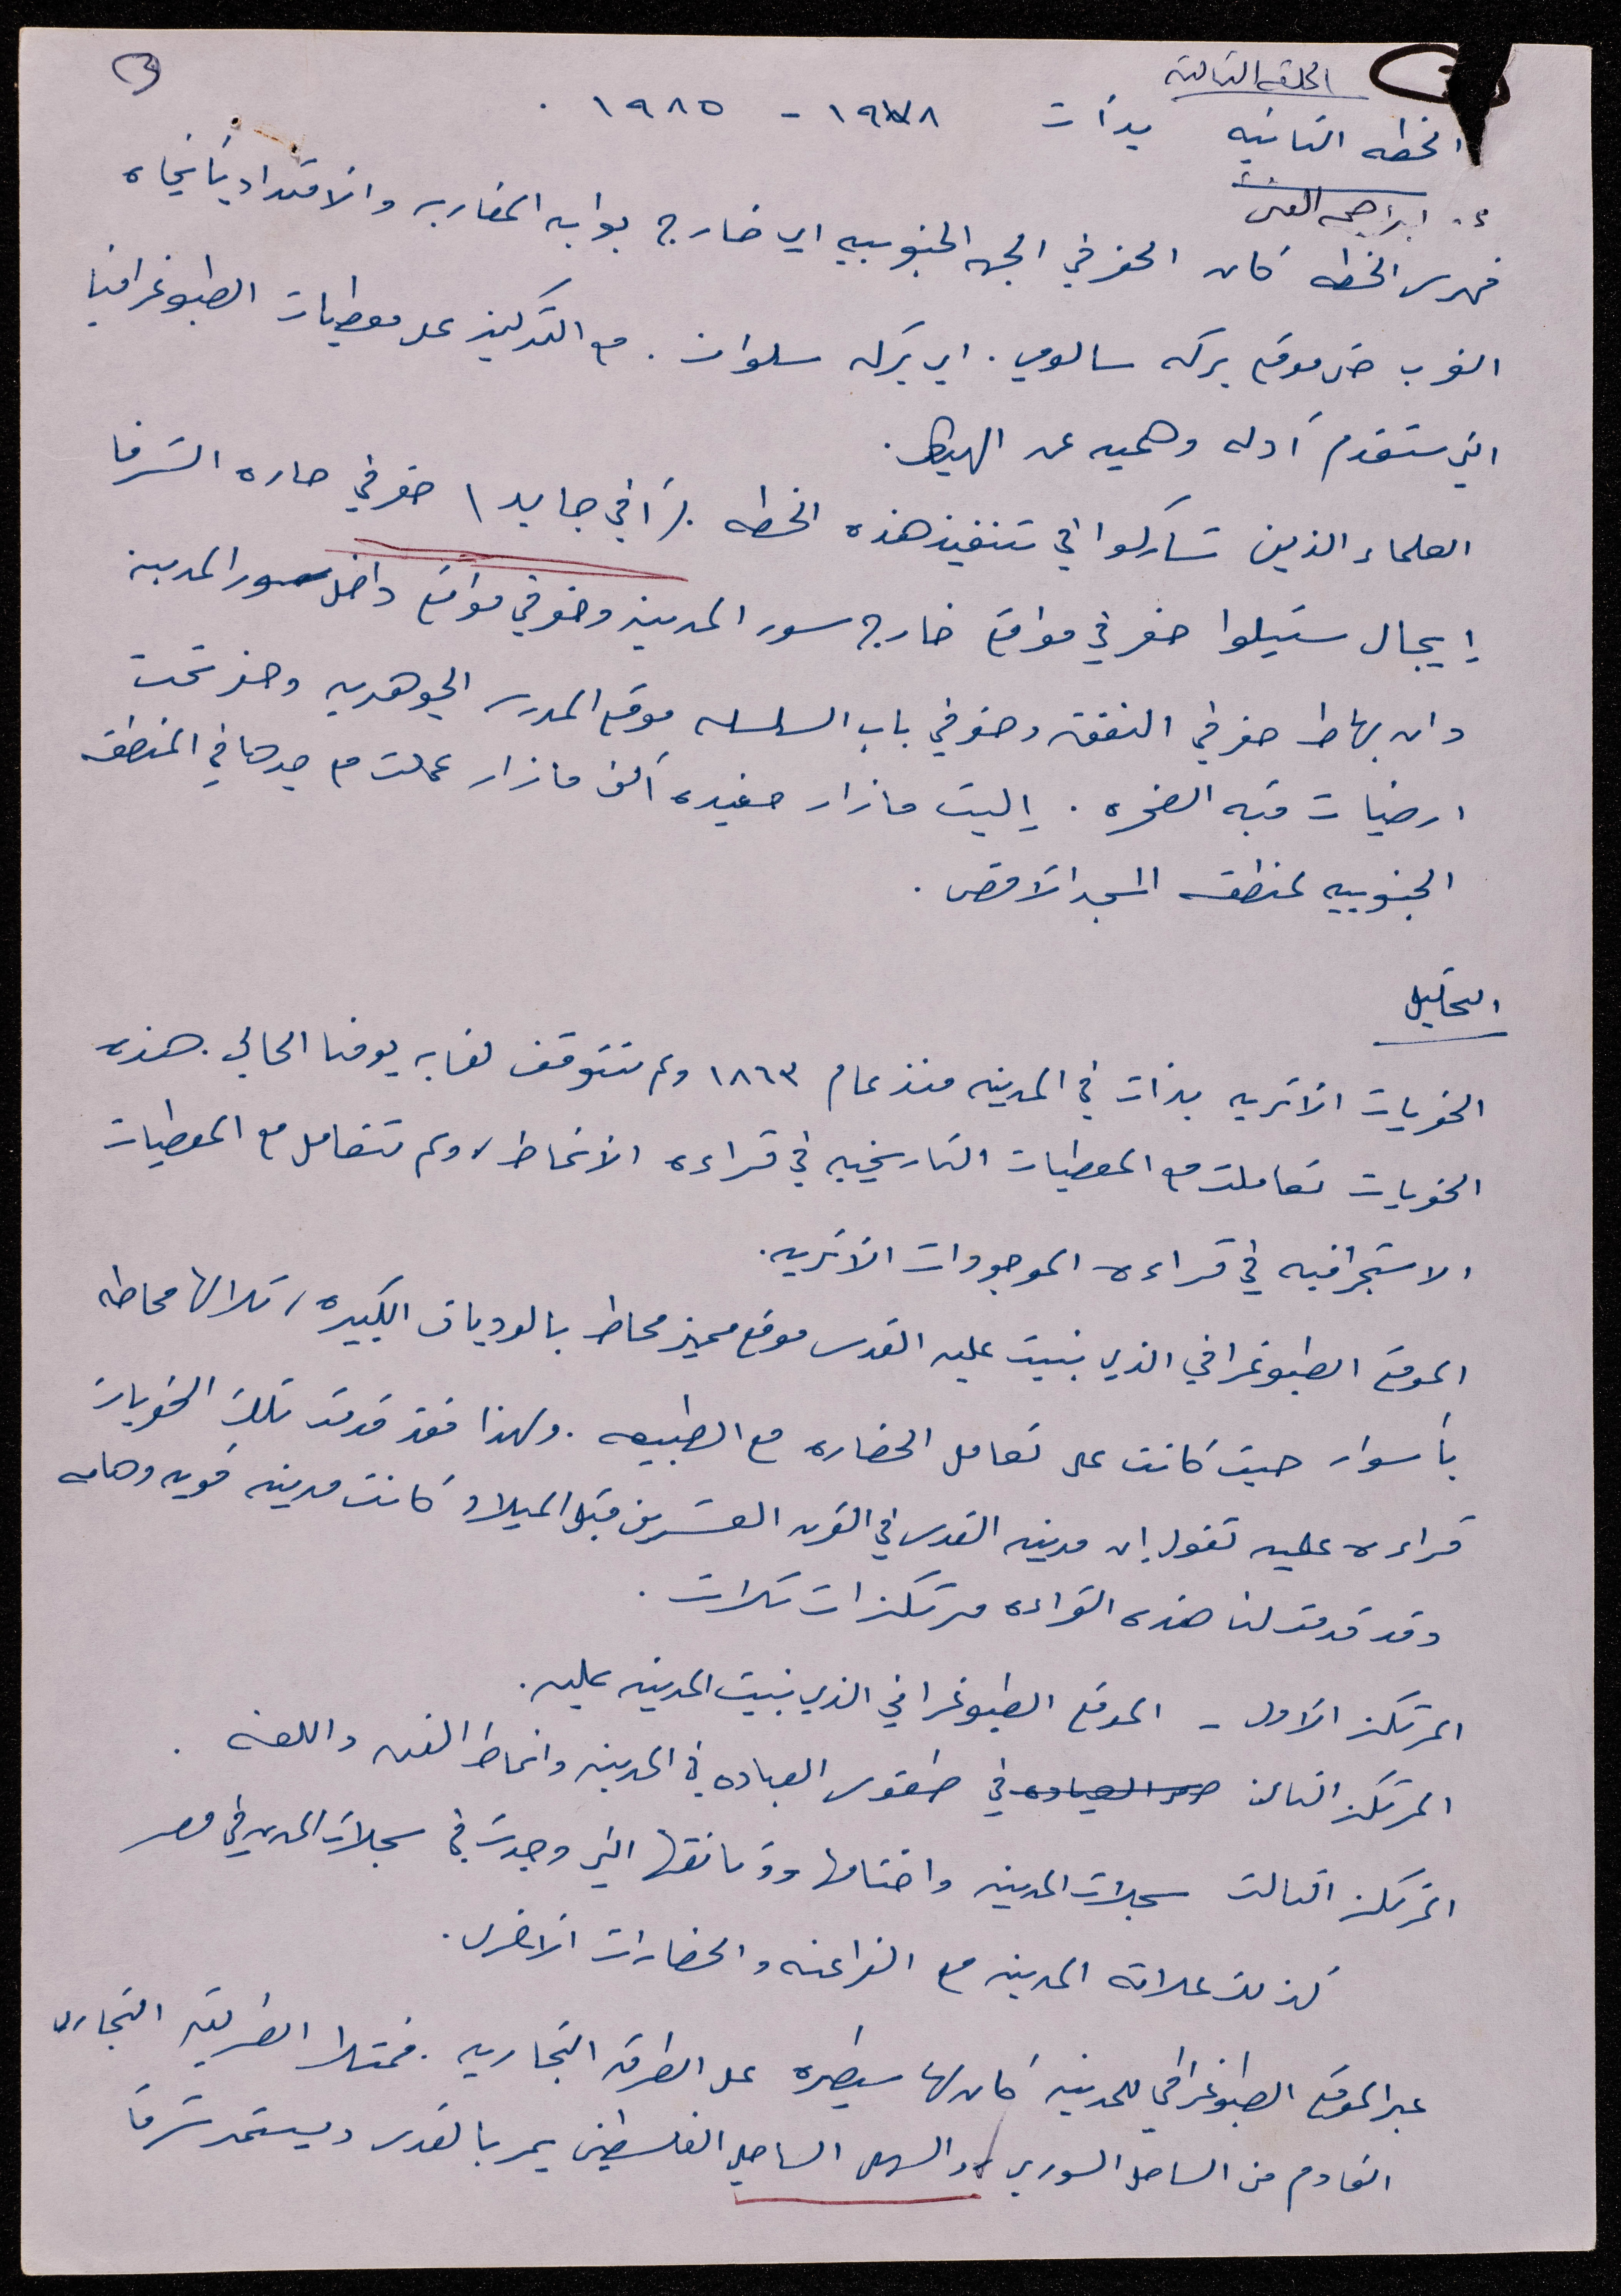 ٣
الحلقه الثالثه
الخطه الثانيه بدأت ١٩٧٨ - ١٩٨٥ .
د. ابراهيم الفني
فهرس الخطه كان الحفر في الجهه الجنوبيه اي خارج بوابه المغاربه والامتداد باتجاه
الغرب حتى موقع بركه سالومي . اي بركه سلوان . مع التركيز على معطيات الطبوغرافيا
التي ستقدم أدله وهميه عن الهيكل .
العلماء الذين شاركوا في تنفيذ هذه الخطه . أفي جايد \ حفر في حاره الشرفا
إيجال شيلوا حفر في مواقع خارج سور المدينه وحفر في مواقع داخل سور المدينه
دان بهاط حفر في النفق وحفر في باب السلسله موقع المدرسه الجوهريه وحفر تحت
ارضيات قبه الصخره . إليت مازار حفيده ألف مازار عملت مع جدها في المنطقه
الجنوبيه لمنطقه المسجد الأقصى .
التحليل
الحفريات الأثريه بدأت في المدينه منذ عام ١٨٦٣ ولم تتوقف لغايه يومنا الحالي . هذه
الحفريات تعاملت مع المعطيات التاريخيه في قراءه الأنماط ، ولم تتعامل مع المعطيات
الاستجرافيه في قراءه الموجودات الأثريه .
الموقع الطبوغرافي الذي بنيت عليه القدس موقع مميز محاط بالوديان الكبيره ، تلالها محاطه
بأسوار حيث كانت على تعامل الحضاره مع الطبيعه . ولهذا فقد قدمت تلك الحفريات
قراءه علميه تقول إن مدينه القدس في القرن العشرين قبل الميلاد كانت مدينه قويه وهامه
وقد قدمت لنا هذه القراءه مرتكزات ثلاث .
المرتكز الأول - الموقع الطبوغرافي الذي بنيت المدينه عليه .
المرتكز الثاني العباده في طقوس العباده في المدينه وانماط الفن واللغه .
المرتكز الثالث سجلات المدينه واختامها ووثائقها التي وجدت في سجلات المدينه في مصر
كذلك علاقه المدينه مع الفراعنه والحضارات الأخرى .
عبر الموقع الطبوغرافي للمدينه كان لها سيطره على الطرق التجاريه . فمثلا الطريق التجاري
القادم من الساحل السوري والسهل الساحلي الفلسطيني يمر بالقدس ويستمر شرقا